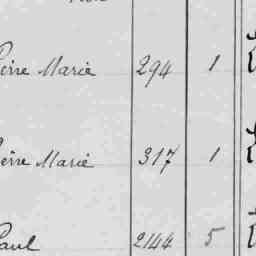 Pierre Marie 294 1
Pierre Marie 317 1
Paul 2144 5